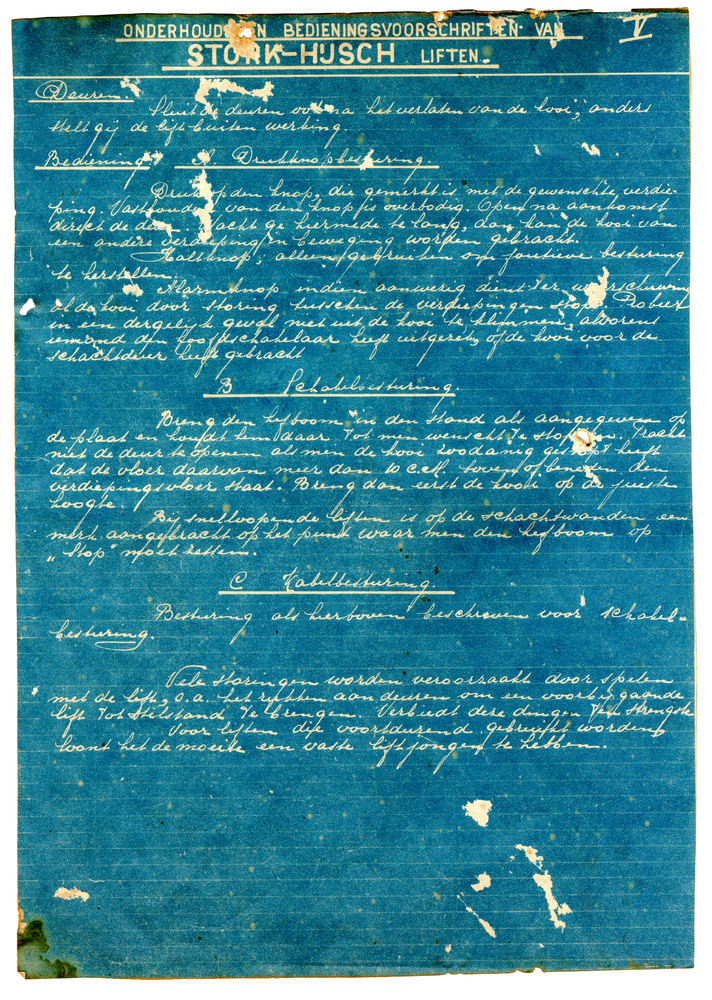 ONDERHOUDS EN BEDIENINGSVOORSCHRIFTEN VAN
V
STORK-HIJSCH LIFTEN.
Deuren.
Sluit de deuren ook na het verlaten van de kooi, anders
stelt gij de lift buiten werking.
Bediening A Drukknopbesturing.
Druk op den knop, die gemerkt is met de gewenschte verdie-
ping. Vasthouden van den knop is overbodig. Open na aankomst
direct de deur. Wacht ge hiermede te lang, dan kan de kooi van
een andere verdieping in beweging worden gebracht.
Haltknop, alleen gebruiken om foutieve besturing
te herstellen.
Alarmknop indien aanwezig dient ter waarschuwing
als de kooi door storing tusschen de verdiepingen stopt. Probeer
in een dergelijk geval niet uit de kooi te klimmen, alvorens
iemand den hoofdschakelaar heeft uitgezet, of de kooi voor de
schachtdeur heeft gebracht
B Schakelbesturing.
Breng den hefboom in den stand als aangegeven op
de plaat en houdt hem daar tot men wenscht te stoppen. Tracht
niet de deur te openen als men de kooi zoodanig gestopt heeft
dat de vloer daarvan meer dan 10 c.M. boven of beneden den
verdiepingsvloer staat. Breng dan eerst de kooi op de juiste
hoogte.
Bij snelloopende liften is op de schachtwanden een
merk aangebracht op het punt waar men den hefboom op
„Stop" moet zetten.
C Kabelbesturing.
Besturing als hierboven beschreven voor schakel-
besturing.
Vele storingen worden veroorzaakt door spelen
met de lift, o.a. het rukken aan deuren om een voorbijgaande
lift tot stilstand te brengen. Verbiedt deze dingen ten strengste
Voor liften die voortdurend gebruikt worden,
loont het de moeite een vaste liftjongen te hebben.